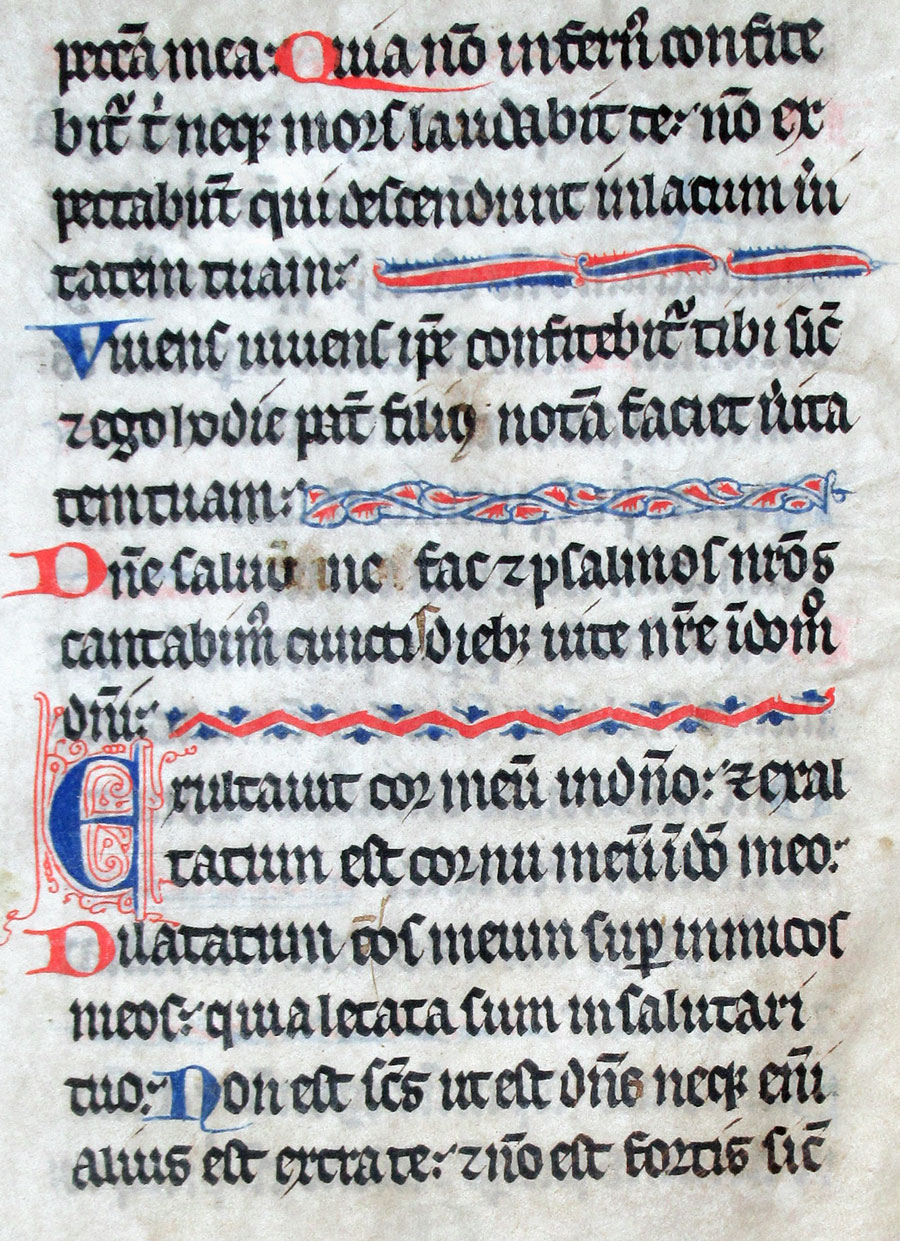 pccā mea: Quia nō infern᷒ confite
bit᷑ t̉ neq; mors laudabit te: nō ex
pectabūt qui descendunt in lacum u̓i
tatem tuam:
Viuens uiuens ip̄e confitebit᷑ tibi sic̄
⁊ ego hodie pat̄ filiꝰ notā faciet u̓ita
tem tuam:
Dn̄e saluū me fac ⁊ psalmos nr̄os
cantabim᷒ cunctis dieb; uite nr̄e ī dom̊
dn̄i:
Exultauit cor meū in dn̄o: ⁊ exal
tatum est cornu meū ī dō meo:
Dilatatum ē os meum sup̱ inimicos
meos: quia letata sum in salutari
tuo: Non est sc̄s ut est dn̄s neq; enī
alius est extra te: ⁊ nō est fortis sic̄